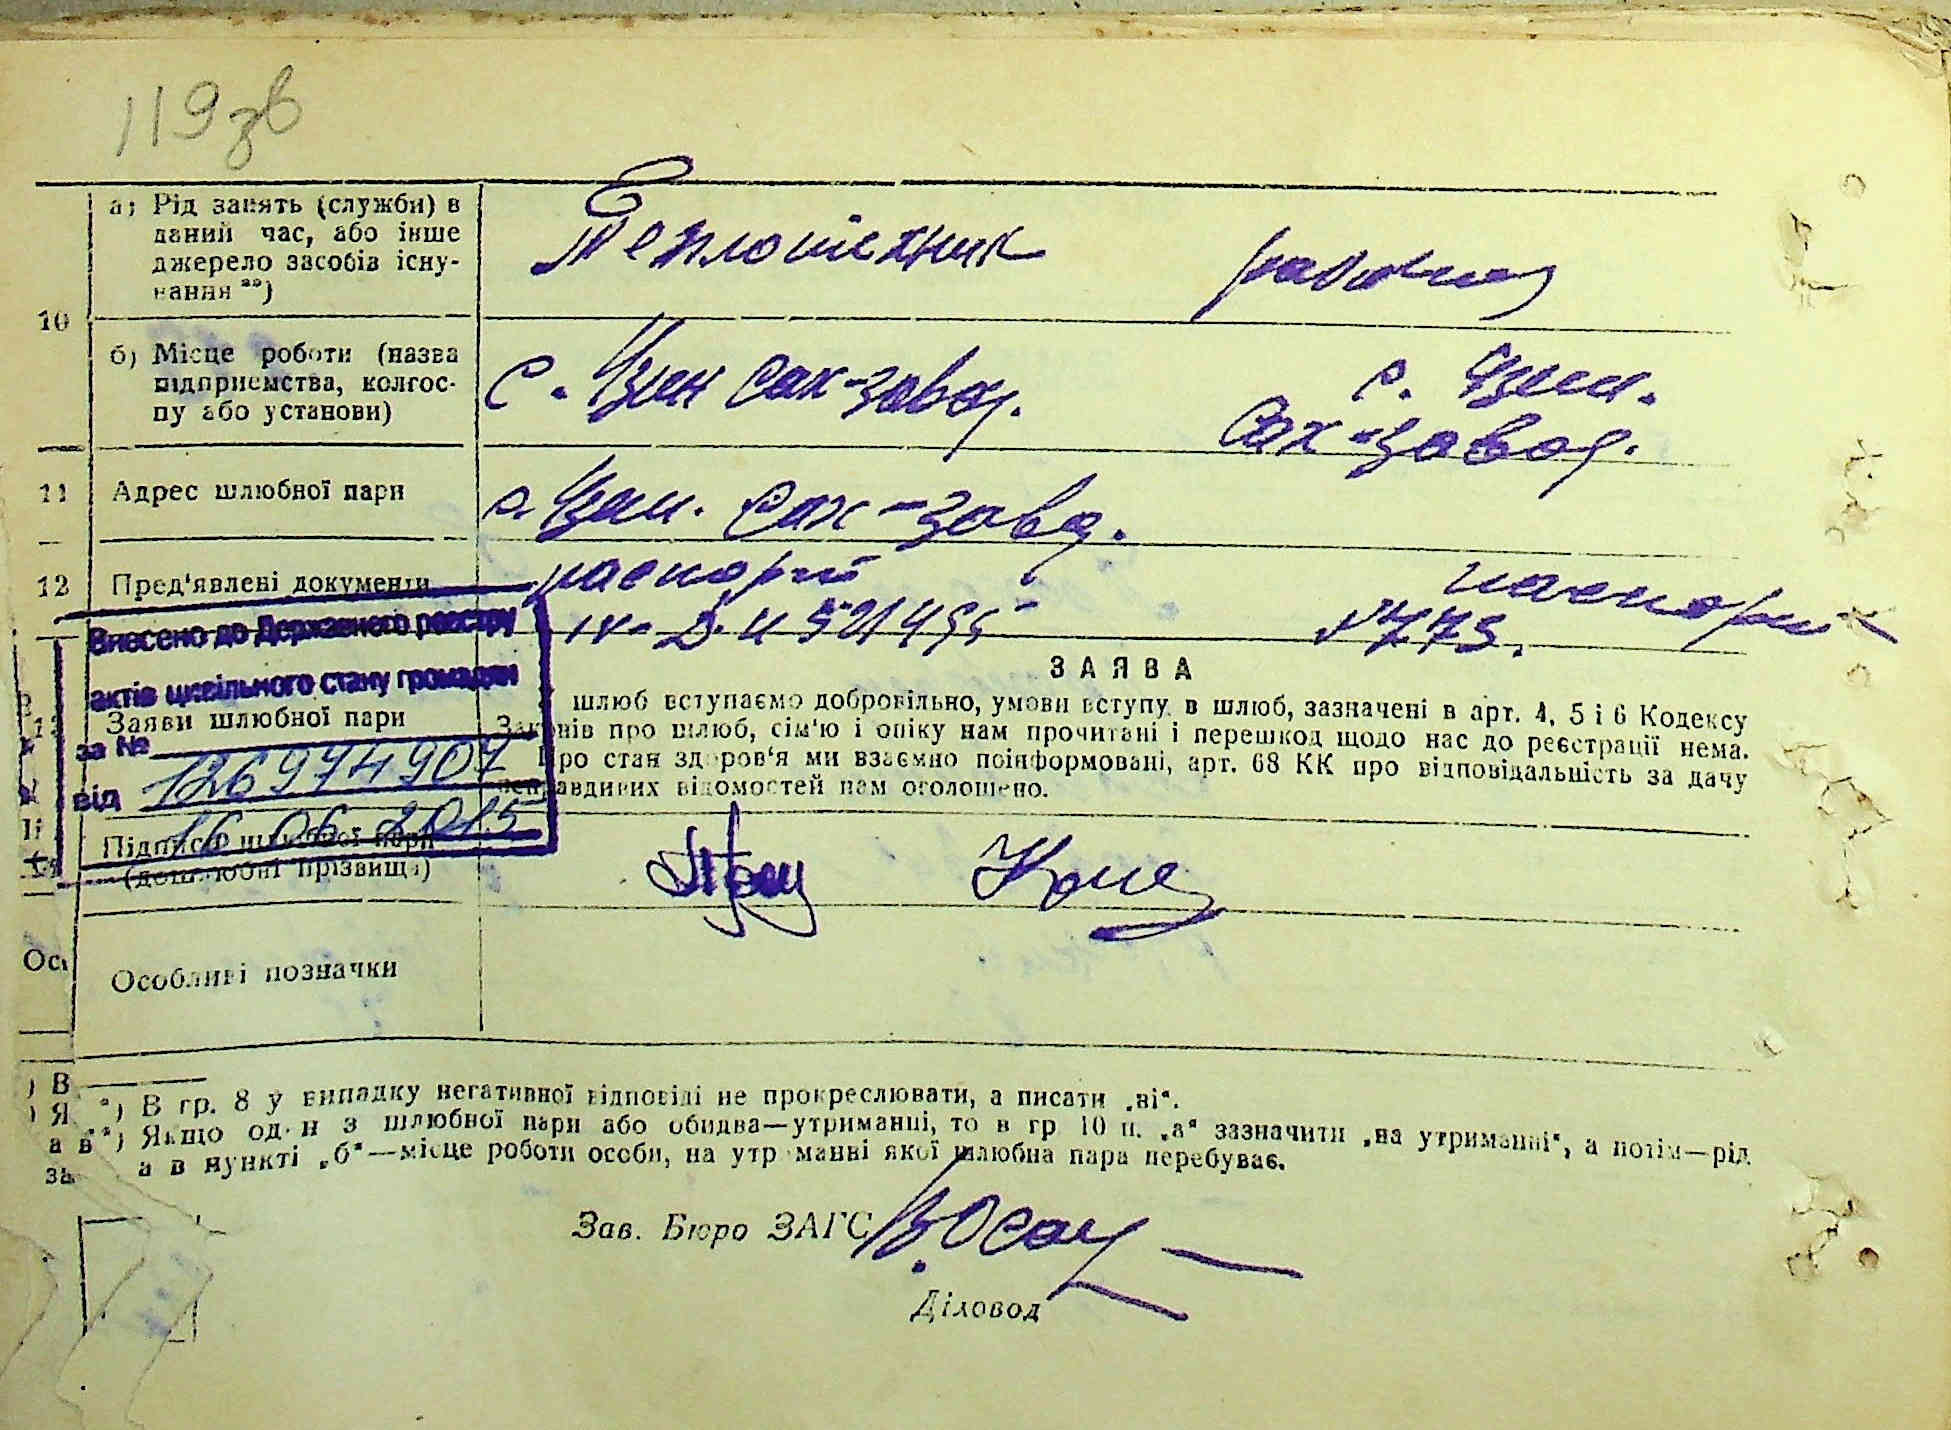 119 зв
а) Рід занять (служби) в
даний час, або інше
джерело засобів існу-
вання **)
Теплотехник
рабочая
10
б) Місце роботи (назва
підприємства, колгос-
пу або установи)
с. сах-завод.
с.
Сах-завод.
11 Адрес шлюбної пари
с. сах-завод.
12 Пред'явлені документи
паспорт
паспорт
Внесено до Державного реєстру
актів цивільного стану громадян
за № 126974907
від 16 06 2015
ЗАЯВА
Заяви шлюбної пари
шлюб вступаємо добровільно, умови вступу в шлюб, зазначені в арт. 4, 5 і 6 Кодексу
Законів про шлюб, сім'ю і опіку нам прочитані і перешкод щодо нас до реєстрації нема.
Про стан здоров'я ми взаємно поінформовані, арт. 68 КК про відповідальність за дачу
неправдивих відомостей нам оголошено.
Підписи шлюбної пари
(дошлюбні прізвища)
Особливі позначки
*) В гр. 8 у випадку негативної відповіді не прокреслювати, а писати „ні“.
**) Якщо один з шлюбної пари або обидва—утриманці, то в гр 10 п. „а“ зазначити „на утриманні“, а потім—рід
а в пункті „б“—місце роботи особи, на утриманні якої шлюбна пара перебуває.
Зав. Бюро ЗАГС
Діловод